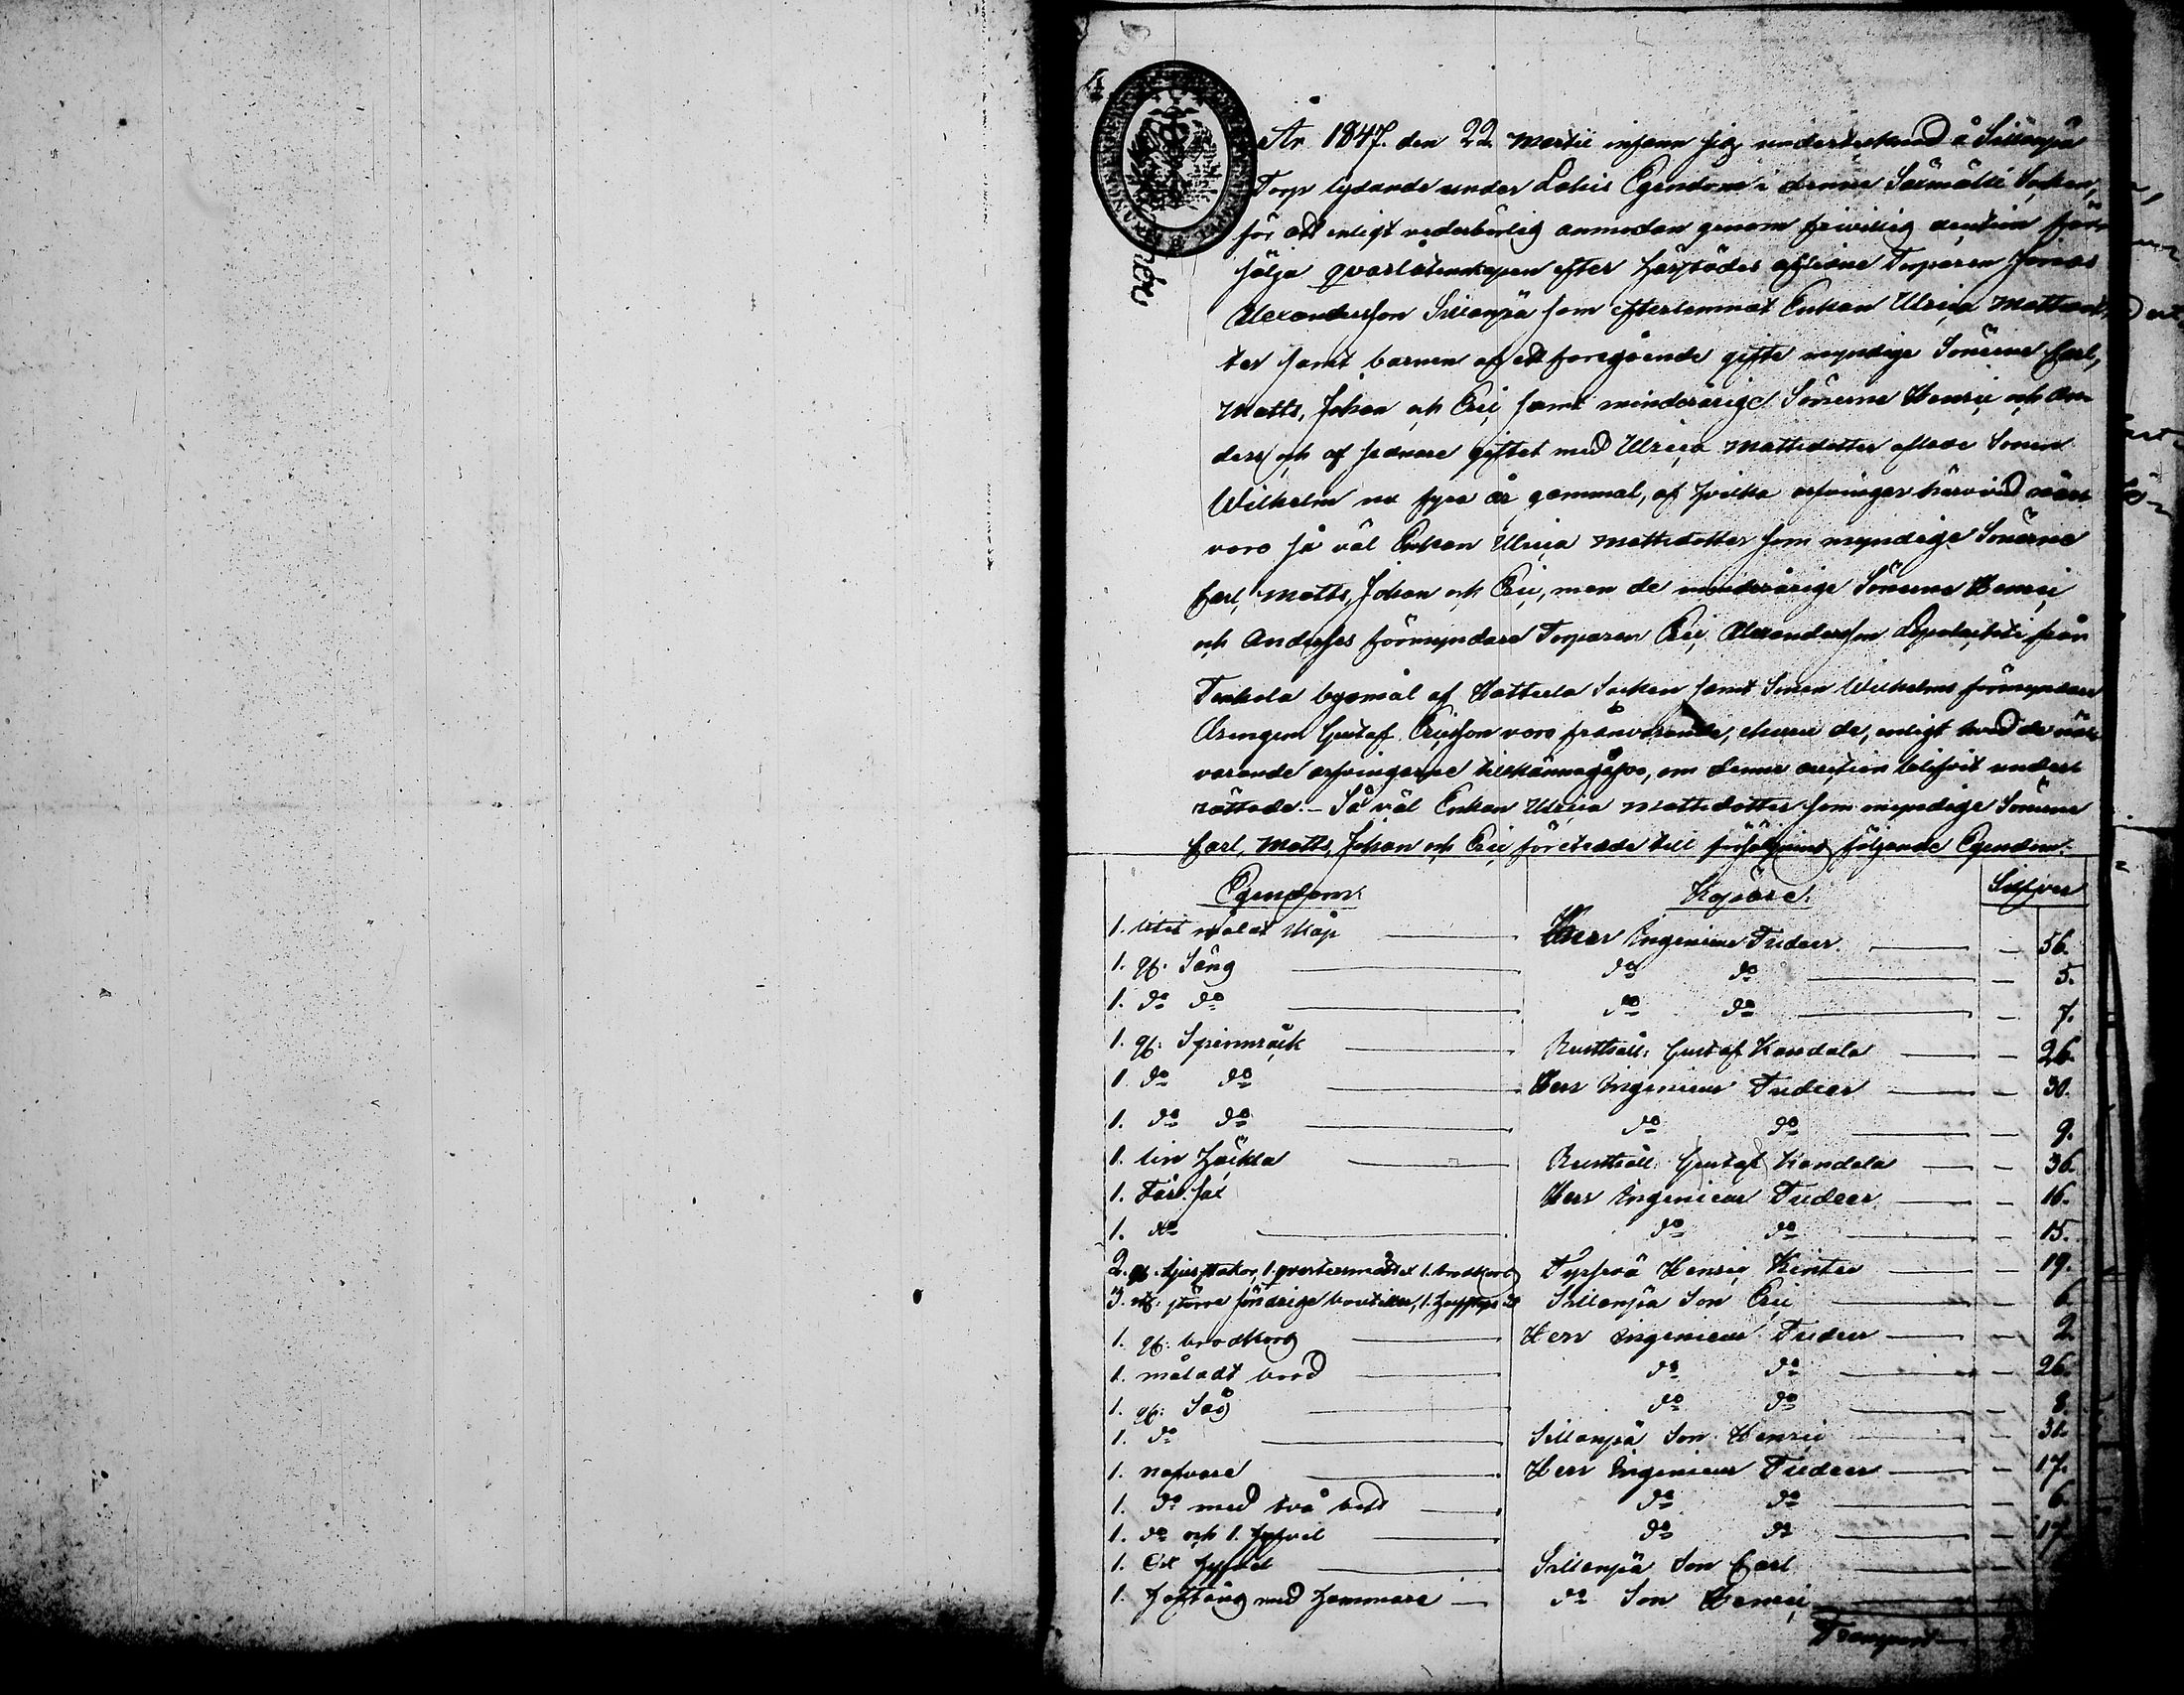 År 1847. den 22 Martii infann sig undertecknad å Sillanpä
Torp lydande under Lahis Egendom i denne Säxmäki Socken,
för att enligt vederbörlig anmodan genom frivillig auction för-
sälja qvarlåtenskapen efter härstädes aflidne Torparen Jonas
Alexandersson Sillanpä som efterlemnat Enkan Ulrica Mattsdot-
ter samt barnen af ett foregående gifte myndige Sönerne Carl,
Matts, Johan och Eric samt minderårige Sönerne Henric och An-
ders och af sednare giftet med Ulrica Mattsdotter aflade Sonen
Wilhelm nu fyra år gammal, af hvilka arfvingar härvid när-
voro så väl Enkan Ulrica Mattsdotter som myndige Sönerne
Carl, Matts, Johan och Eric, men de minderårige Sönerne Henric
och Anderses förmyndare Torparen Eric Alexandersson från
Tenhola by af Hattula Socken samt Sonen Wilhelms förmyndare
Gustaf Ericsson voro frånvarande, ehuru de, enligt hvad de när-
varande arfvingarne tillkännagåfvo, om denne auction blifvit under-
rättade. – Så väl Enkan Ulrica Mattsdotter som myndige Sönerne
Carl, Matts, Johan och Eric företedde till försäljning följande Egendom:
Egendom Köpare Silfver
1. litet målat skåp Herr Ingenieur Tudeer — 56.
1. gl. Säng do do — 5.
1. do do do do — 7.
1. gl. Spinnråck Rusthåll: Gustaf Kandola — 26.
1. do do Herr Ingenieur Tudeer — 30.
1. do do do do — 9.
1. lin häckla Rusthåll: Gustaf Kandola — 36.
1. Får sax Herr Ingenieur Tudeer — 16.
1. do do do — 15.
2. gl. ljusstakar, 1. qvartersmått 1. brödkorg Henric — 19.
3. st. större söndrige bouteiller, 1. Sillanpä Son Eric — 6.
1. gl. brödkorg Herr Ingenieur Tudeer — 2.
1. måladt bord do do — 26.
1. gl. Såg do do — 8.
1. do Sillanpä Son Henric — 31.
1. nafvare Herr Ingenieur Tudeer — 17.
1. do med två bett do do — 6.
1. do och 1. hyfvel do do — 17.
1. hyfvel Sillanpä Son Carl
1. Hoftång med hammare do Son Henric
Transport